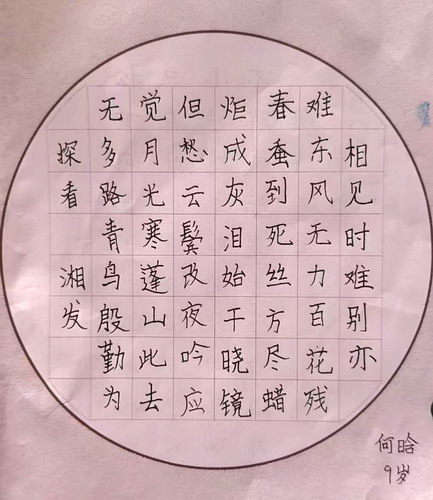 相见时难别亦
难东风无力百花残
春蚕到死丝方尽蜡
炬成灰泪始干晓镜
但愁云鬓改夜吟应
觉月光寒蓬山此去
无多路青鸟殷勤为
探看 湘发
何晗
9岁